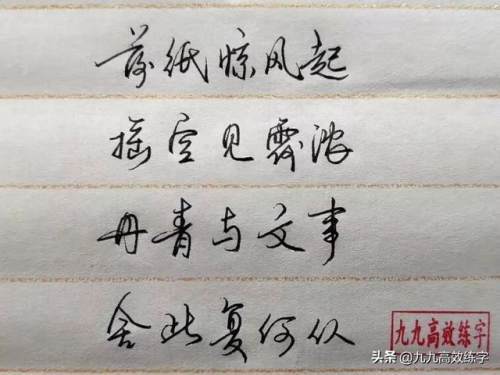 落纸惊风起
摇空见露浓
丹青与文事
舍此复何从
九九高效练字
头条 @九九高效练字